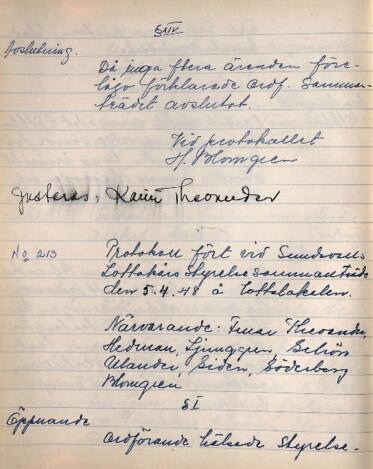 § XIV.
Avslutning.
Då inga flera ärenden före-
lågo förklarade ordf. Samman-
trädet avslutat.
Vid protokollet
H. Blomgren
Justeras: Karin Theorender
No 213
Protokoll fört vid Sundsvalls
Lottakårs Styrelsesammanträde
den 5.4.48 å Lottalokalen.
Närvarande: Fruar Theorender,
Hedman, Ljunggren, Behörs
Ulander, Siden, Söderberg
Blomgren
§ I
Öppnande
Ordförande hälsade Styrelse-